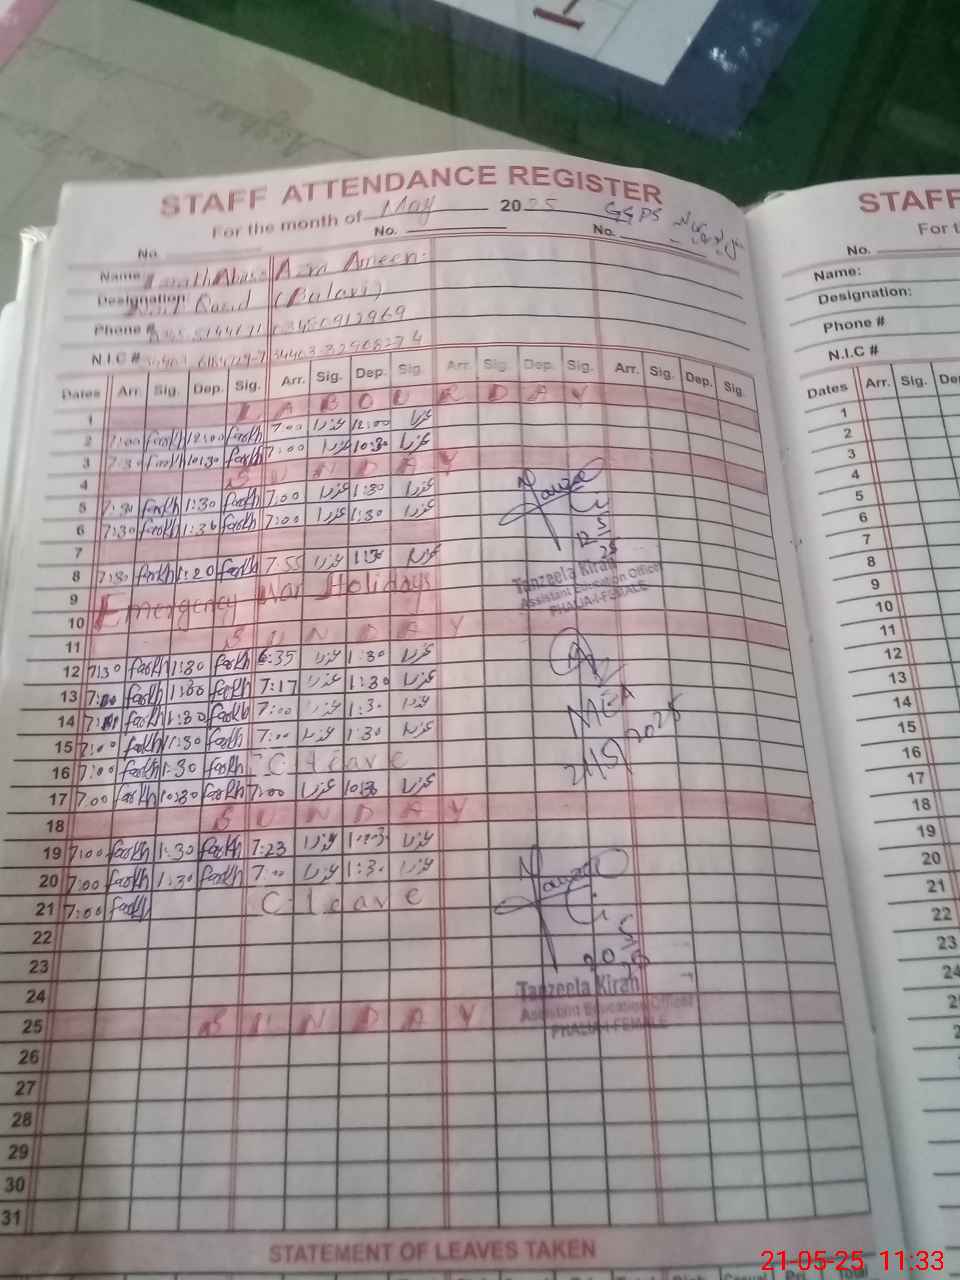 STAFF ATTENDANCE REGISTER
For the month of May 2025 GGPS
No. No. No.
Name: Abbas Azra Ameen
Designation:
Phone # 03450912969
N.I.C #
Dates Arr. Sig. Dep. Sig. Arr. Sig. Dep. Sig. Arr. Sig. Dep. Sig. Arr. Sig. Dep. Sig.
1 LABOUR DAY
2 7:00 farkh 12:00 farkh 7:00 عزرا 12:00 عزرا
3 7:30 farkh 10:30 farkh 7:00 عزرا 10:30 عزرا
4 SUNDAY
5 7:30 farkh 1:30 farkh 7:00 عزرا 1:30 عزرا
6 7:30 farkh 1:30 farkh 7:00 عزرا 1:30 عزرا
7
8 7:30 farkh 1:20 farkh 7:55 عزرا 1:30 عزرا
9 Emergency War Holidays
10
11 SUNDAY
12 7:30 farkh 1:30 farkh 6:35 عزرا 1:30 عزرا
13 7:00 farkh 1:00 farkh 7:17 عزرا 1:30 عزرا
14 farkh 1:30 farkh 7:00 عزرا 1:30 عزرا
15 7:00 farkh 1:30 farkh 7:00 عزرا 1:30 عزرا
16 7:00 farkh 1:30 farkh C leave
17 7:00 farkh 10:30 farkh 7:00 عزرا 10:30 عزرا
18 SUNDAY
19 7:00 farkh 1:30 farkh 7:23 عزرا عزرا
20 7:00 farkh 1:30 farkh 7:00 عزرا 1:30 عزرا
21 7:00 farkh C leave
22
23
24
25 SUNDAY
26
27
28
29
30
31
12 5 25
Tanzeela Kiran
Assistant Education Officer
PHALIA-I-FEMALE
MEA
21/5/2025
20 5 25
Tanzeela Kiran
Assistant Education Officer
PHALIA-I-FEMALE
STATEMENT OF LEAVES TAKEN
STAFF
For t
No.
Name:
Designation:
Phone #
N.I.C #
Dates Arr. Sig. De
1
2
3
4
5
6
7
8
9
10
11
12
13
14
15
16
17
18
19
20
21
22
23
24
2
26
27
2
21-05-25 11:33